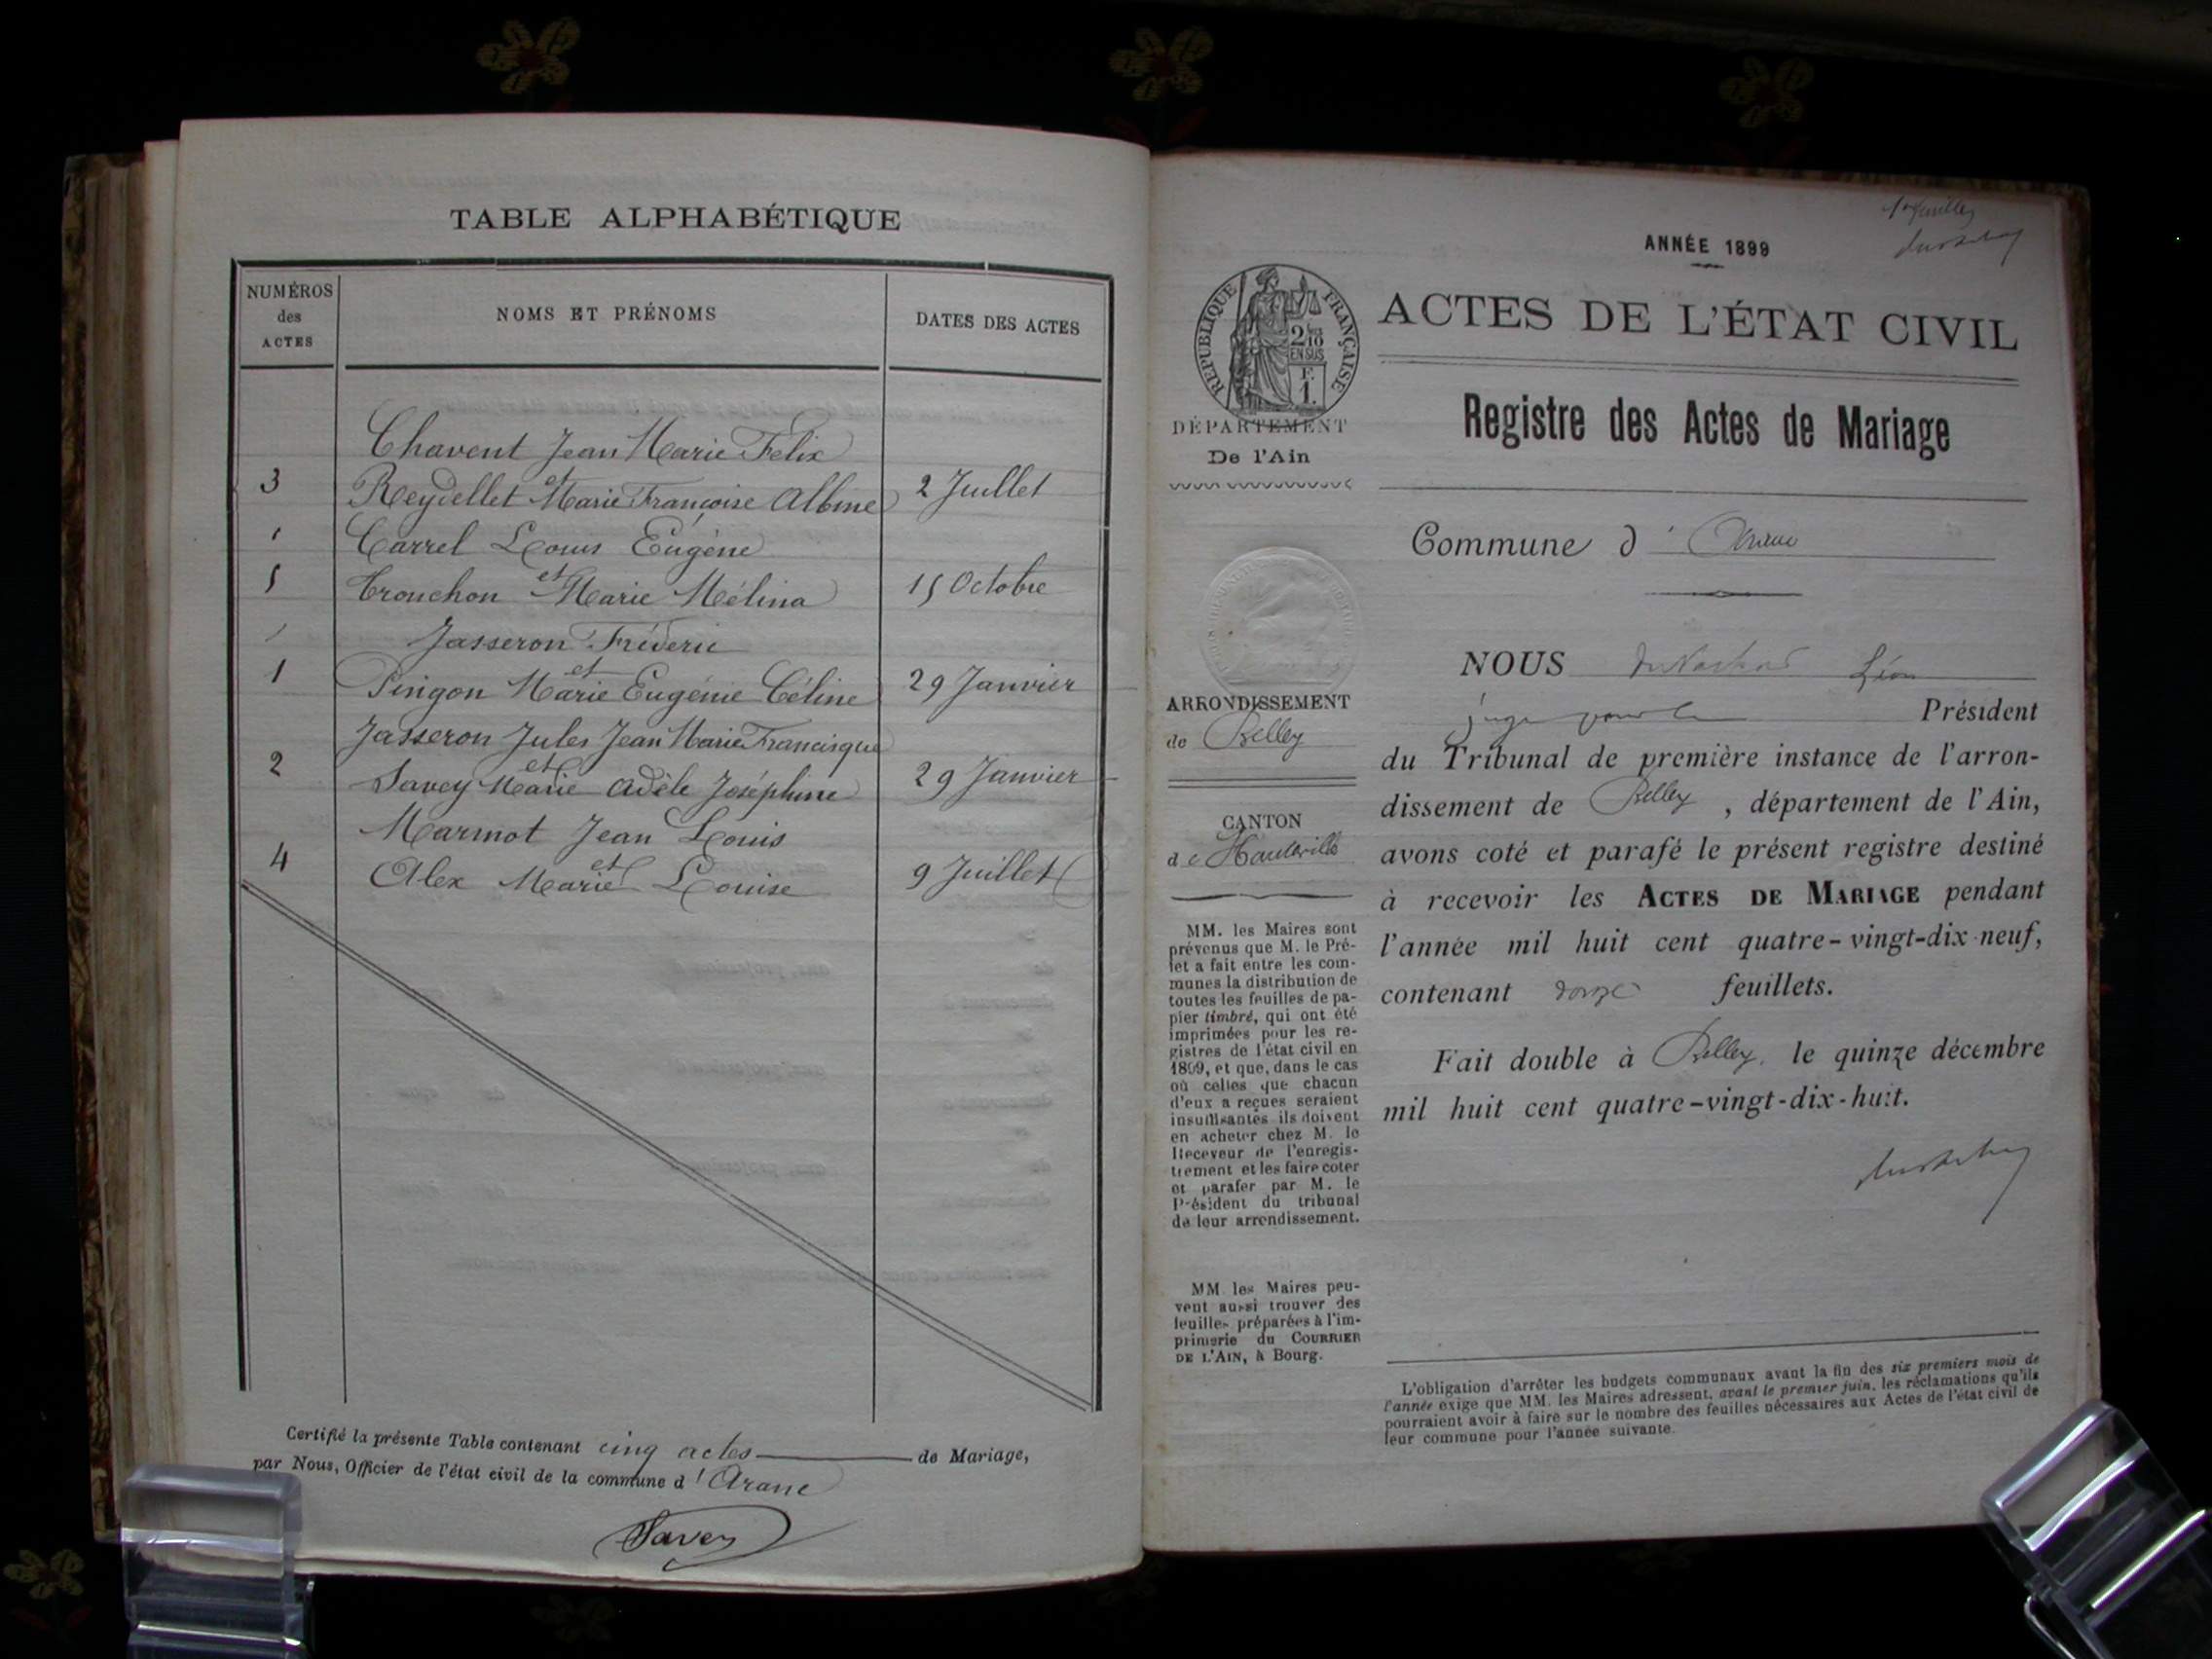 TABLE ALPHABÉTIQUE
NUMÉROS
des
ACTES
NOMS ET PRÉNOMS
DATES DES ACTES
Chavent Jean Marie Felix
et
3 Reydellet Marie Françoise Albine 2 Juillet
Carrel Louis Eugène
et
5 Trouchon Marie Mélina 15 Octobre
Jasseron Fréderic
et
1 Pingon Marie Eugénie Céline 29 Janvier
Jasseron Jules Jean Marie Francisque
et
2 Savey Marie Adèle Joséphine 29 Janvier
Marmot Jean Louis
et
4 Alex Marie Louise 9 Juillet
Certifié la présente Table contenant cinq actes de Mariage,
par Nous, Officier de l'état civil de la commune d'Aranc
Savey
1er feuillet
ANNÉE 1899
RÉPUBLIQUE FRANÇAISE
2/10
EN SUS
F.
1.
ACTES DE L'ÉTAT CIVIL
Registre des Actes de Mariage
DÉPARTEMENT
De l'Ain
Commune d'Aranc
ARRONDISSEMENT
de Belley
CANTON
de Hauteville
MM. les Maires sont
prévenus que M. le Pré-
fet a fait entre les com-
munes la distribution de
toutes les feuilles de pa-
pier timbré, qui ont été
imprimées pour les re-
gistres de l'état civil en
1899, et que, dans le cas
où celles que chacun
d'eux a reçues seraient
insuffisantes ils doivent
en acheter chez M. le
Receveur de l'enregis-
trement et les faire coter
et parafer par M. le
Président du tribunal
de leur arrondissement.
MM. les Maires peu-
vent aussi trouver des
feuilles préparées à l'im-
primerie du COURRIER
DE L'AIN, à Bourg.
NOUS Léon
juge pour le Président
du Tribunal de première instance de l'arron-
dissement de Belley, département de l'Ain,
avons coté et parafé le présent registre destiné
à recevoir les ACTES DE MARIAGE pendant
l'année mil huit cent quatre-vingt-dix-neuf,
contenant douze feuillets.
Fait double à Belley, le quinze décembre
mil huit cent quatre-vingt-dix-huit.
L'obligation d'arrêter les budgets communaux avant la fin des six premiers mois de
l'année exige que MM. les Maires adressent, avant le premier juin, les réclamations qu'ils
pourraient avoir à faire sur le nombre des feuilles nécessaires aux Actes de l'état civil de
leur commune pour l'année suivante.